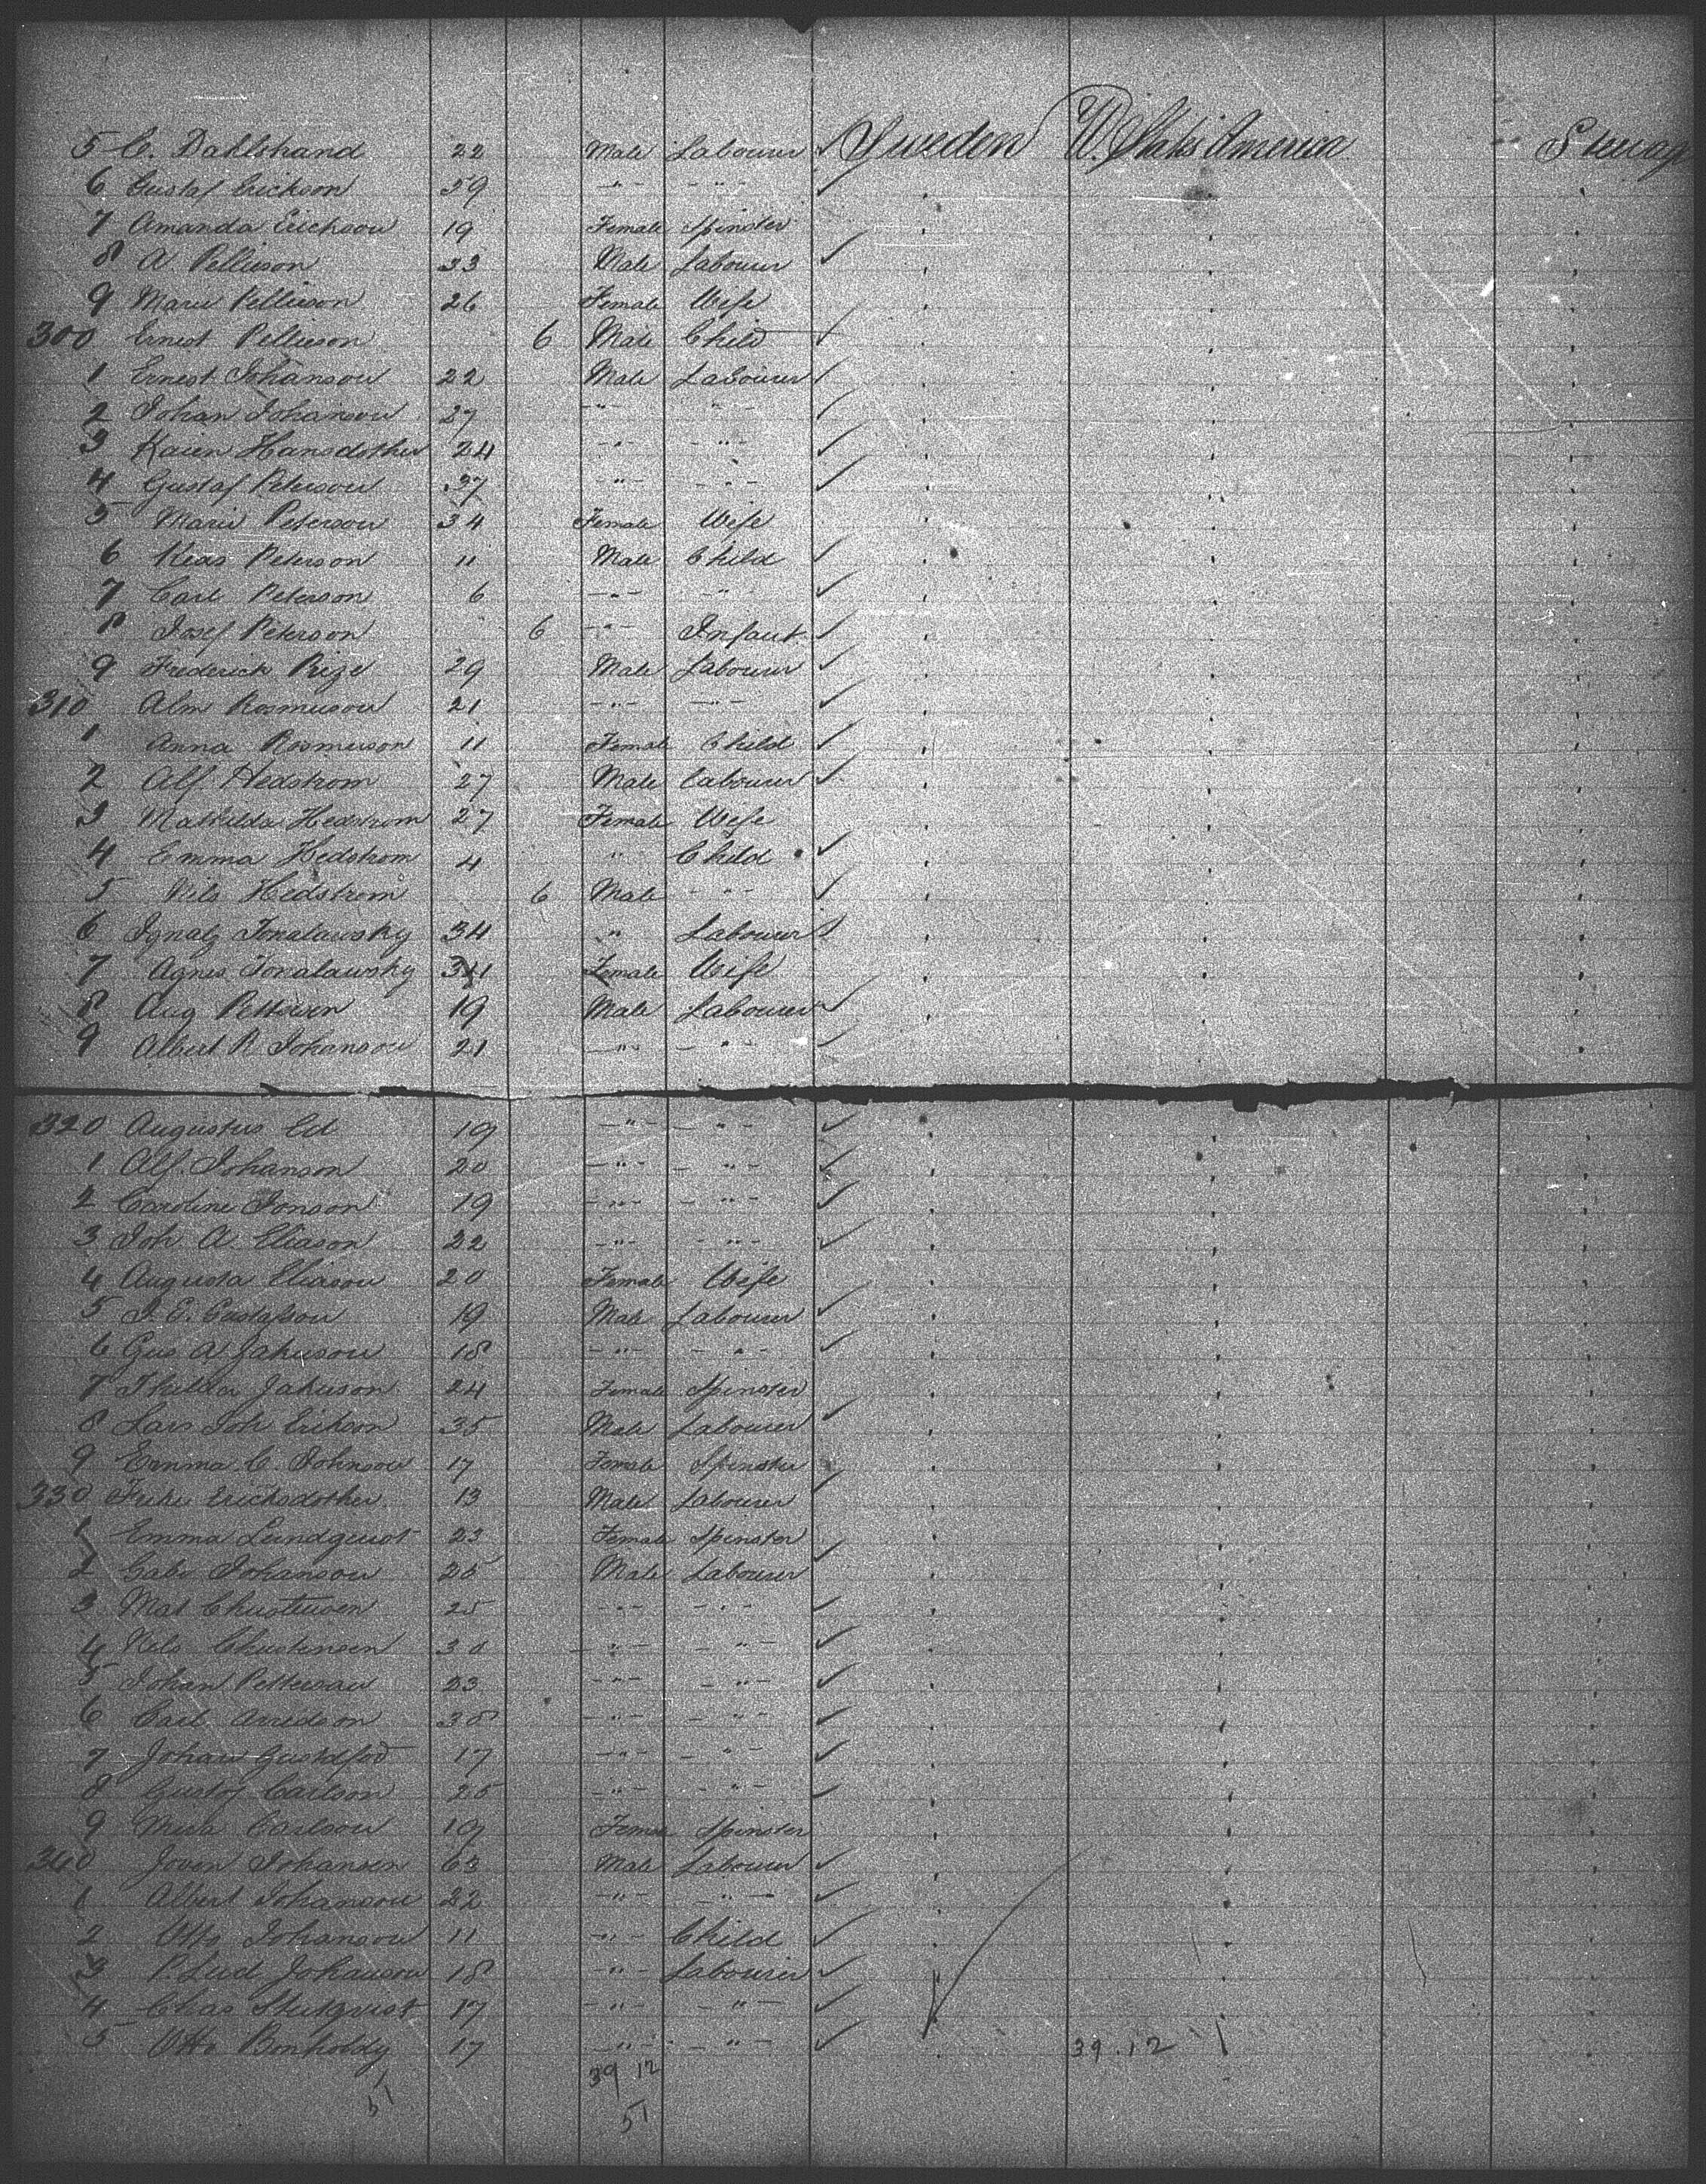 5 C. Dahlstrand 22 Male Labourer ✓ Sweden U. States America Steerage
6 Gustaf Erickson 59 -"- -"- ✓
7 Amanda Erickson 19 Female Spinster
8 A. Pellieson 33 Male Labourer ✓
9 Marie Pellieson 26 Female Wife
300 Ernest Pellieson 6 Male Child ✓
1 Ernest Johanson 22 Male Labourer ✓
2 Johan Johanson 27 -"- " - ✓
3 Karen Hansdother 24 -"- -"- ✓
4 Gustaf Peterson 37 -"- -"- ✓
5 Marie Peterson 34 Female Wife
6 Peterson 11 Male Child ✓
7 Carl Peterson 6 -"- -"- ✓
8 Josef Peterson 6 -"- Infant ✓
9 Frederick 29 Male Labourer ✓
310 Alm Rosmuson 21 -"- -"- ✓
1 Anna Rosmuson 11 Female Child ✓
2 Alf. Hedstrom 27 Male Labourer ✓
3 Mathilda Hedstrom 27 Female Wife
4 Emma Hedstrom 4 " Child ✓
5 Nils Hedstrom 6 Male -"- ✓
6 Ignatz Tonalawsky 34 " Labourer ✓
7 Agnes Tonalawsky Female Wife
8 Aug Petterson 19 Male Labourer ✓
9 Albert R. Johanson 21 -"- -"- ✓
320 Augustus Ed 19 -"- -"- ✓
1 Alf. Johanson 20 -"- -"- ✓
2 Caroline Jonson 19 -"- -"- ✓
3 Joh. A. Eliason 22 -"- -"- ✓
4 Augusta Eliason 20 Female Wife
5 J. E. Gustafson 19 Male Labourer ✓
6 Gus A Jahnson 18 -"- -"- ✓
7 Thilda Jahnson 24 Female Spinster
8 Lars Joh Erikson 35 Male Labourer ✓
9 Emma C. Johnson 17 Female Spinster
330 Ericksdother 13 Male Labourer ✓
1 Emma Lundquist 23 Female Spinster
2 Johanson 25 Male Labourer ✓
3 Mat Christensen 25 -"- -"- ✓
4 Nels Christensen 30 -"- -"- ✓
5 Johan Petterson 23 -"- -"- ✓
6 Carl Arvidson 38 -"- -"- ✓
7 Johan Gustafson 17 -"- -"- ✓
8 Gustof Carlson 25 -"- -"- ✓
9 Carlson 19 Female Spinster
340 Johansen 63 Male Labourer ✓
1 Albert Johanson 22 -"- -"- ✓
2 Otto Johanson 11 -"- Child ✓
3 P. Lud Johanson 18 -"- Labourer ✓
4 Chas 17 -"- -"- ✓
5 Otto Bonholdy 17 -"- -"- ✓ 39.12
39 12
51 51